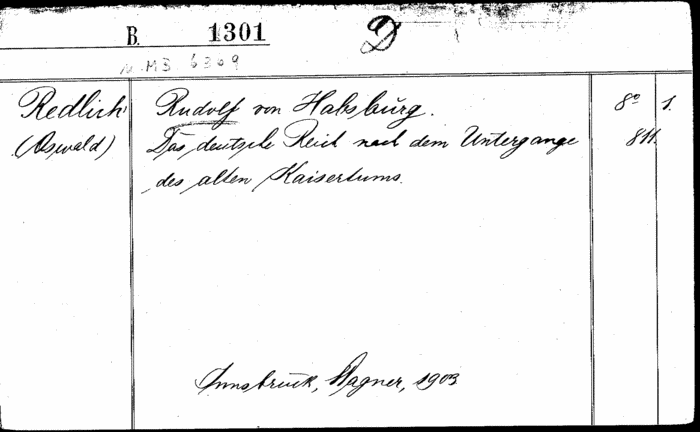 B. 1301 D
MB 6369
Redlich Rudolf von Habsburg. 8° 1.
(Oswald) Das deutsche Reich nach dem Untergange 811.
des alten Kaisertums.
Innsbruck, Wagner, 1903